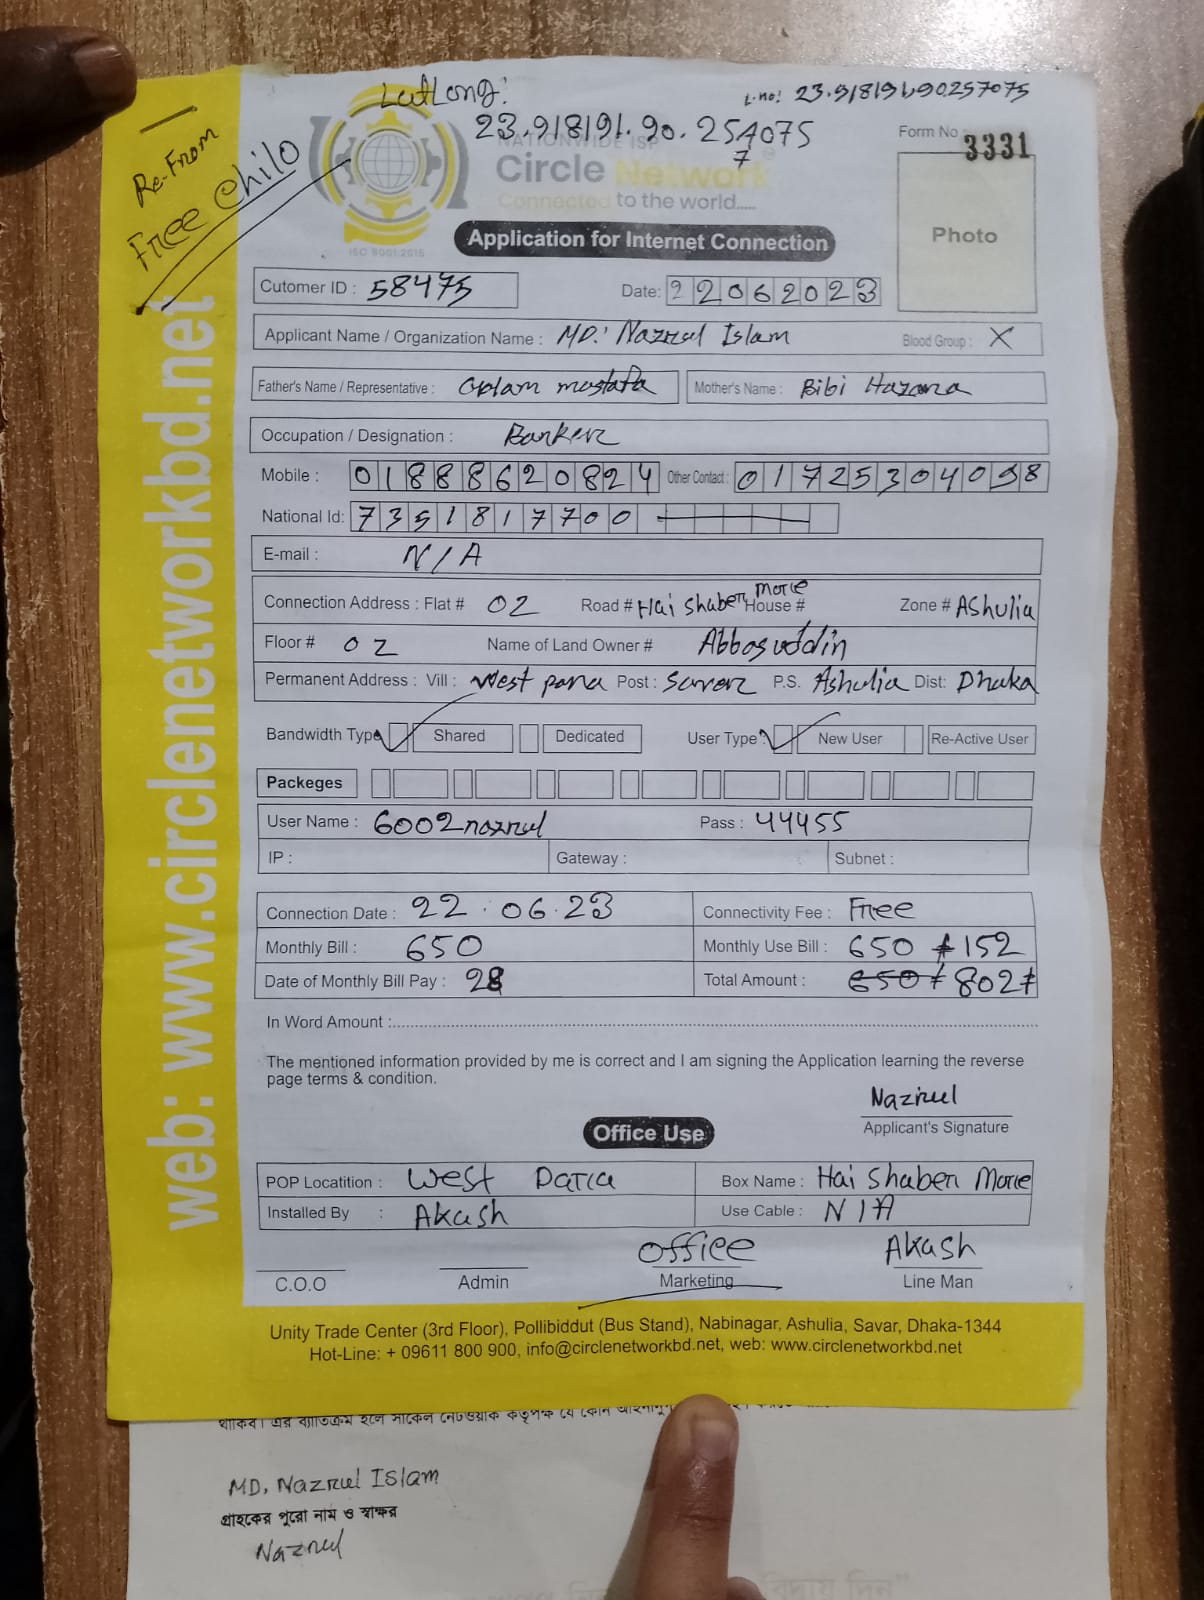 LatLong:
L.no: 23.91819690257075
23.918191.90.257075
7
Re-From
Free Chilo
NATIONWIDE ISP
Circle Network
Connected to the world.....
ISO 9001:2015
Form No : 3331
Photo
Application for Internet Connection
Cutomer ID : 58475 Date: 22062023
Applicant Name / Organization Name : MD. Nazrul Islam Blood Group : X
Father's Name / Representative : Golam mostafa Mother's Name : Bibi Hazana
Occupation / Designation : Banker
Mobile : 01888620824 Other Contact : 01725304098
National Id: 7351817700
E-mail : N/A
Connection Address : Flat # 02 Road # Hai Shaber More House # Zone # Ashulia
Floor # 02 Name of Land Owner # Abbasuddin
Permanent Address : Vill : West para Post : Saver P.S. Ashulia Dist: Dhaka
Bandwidth Type Shared Dedicated User Type : New User Re-Active User
Packeges
User Name : 6002nazrul Pass : 44455
IP : Gateway : Subnet :
Connection Date : 22.06.23 Connectivity Fee : Free
Monthly Bill : 650 Monthly Use Bill : 650 + 152
Date of Monthly Bill Pay : 28 Total Amount : 650 + 802
In Word Amount :
The mentioned information provided by me is correct and I am signing the Application learning the reverse
page terms & condition.
Nazrul
Applicant's Signature
Office Use
POP Locatition : West Para Box Name : Hai Shaber More
Installed By : Akash Use Cable : N/A
Office Akash
C.O.O Admin Marketing Line Man
Unity Trade Center (3rd Floor), Pollibiddut (Bus Stand), Nabinagar, Ashulia, Savar, Dhaka-1344
Hot-Line: + 09611 800 900, info@circlenetworkbd.net, web: www.circlenetworkbd.net
web: www.circlenetworkbd.net
থাকিব। এর ব্যাতিক্রম হলে সার্কেল নেটওয়ার্ক কর্তৃপক্ষ যে কোন
MD. Nazrul Islam
গ্রাহকের পুরো নাম ও স্বাক্ষর
Nazrul